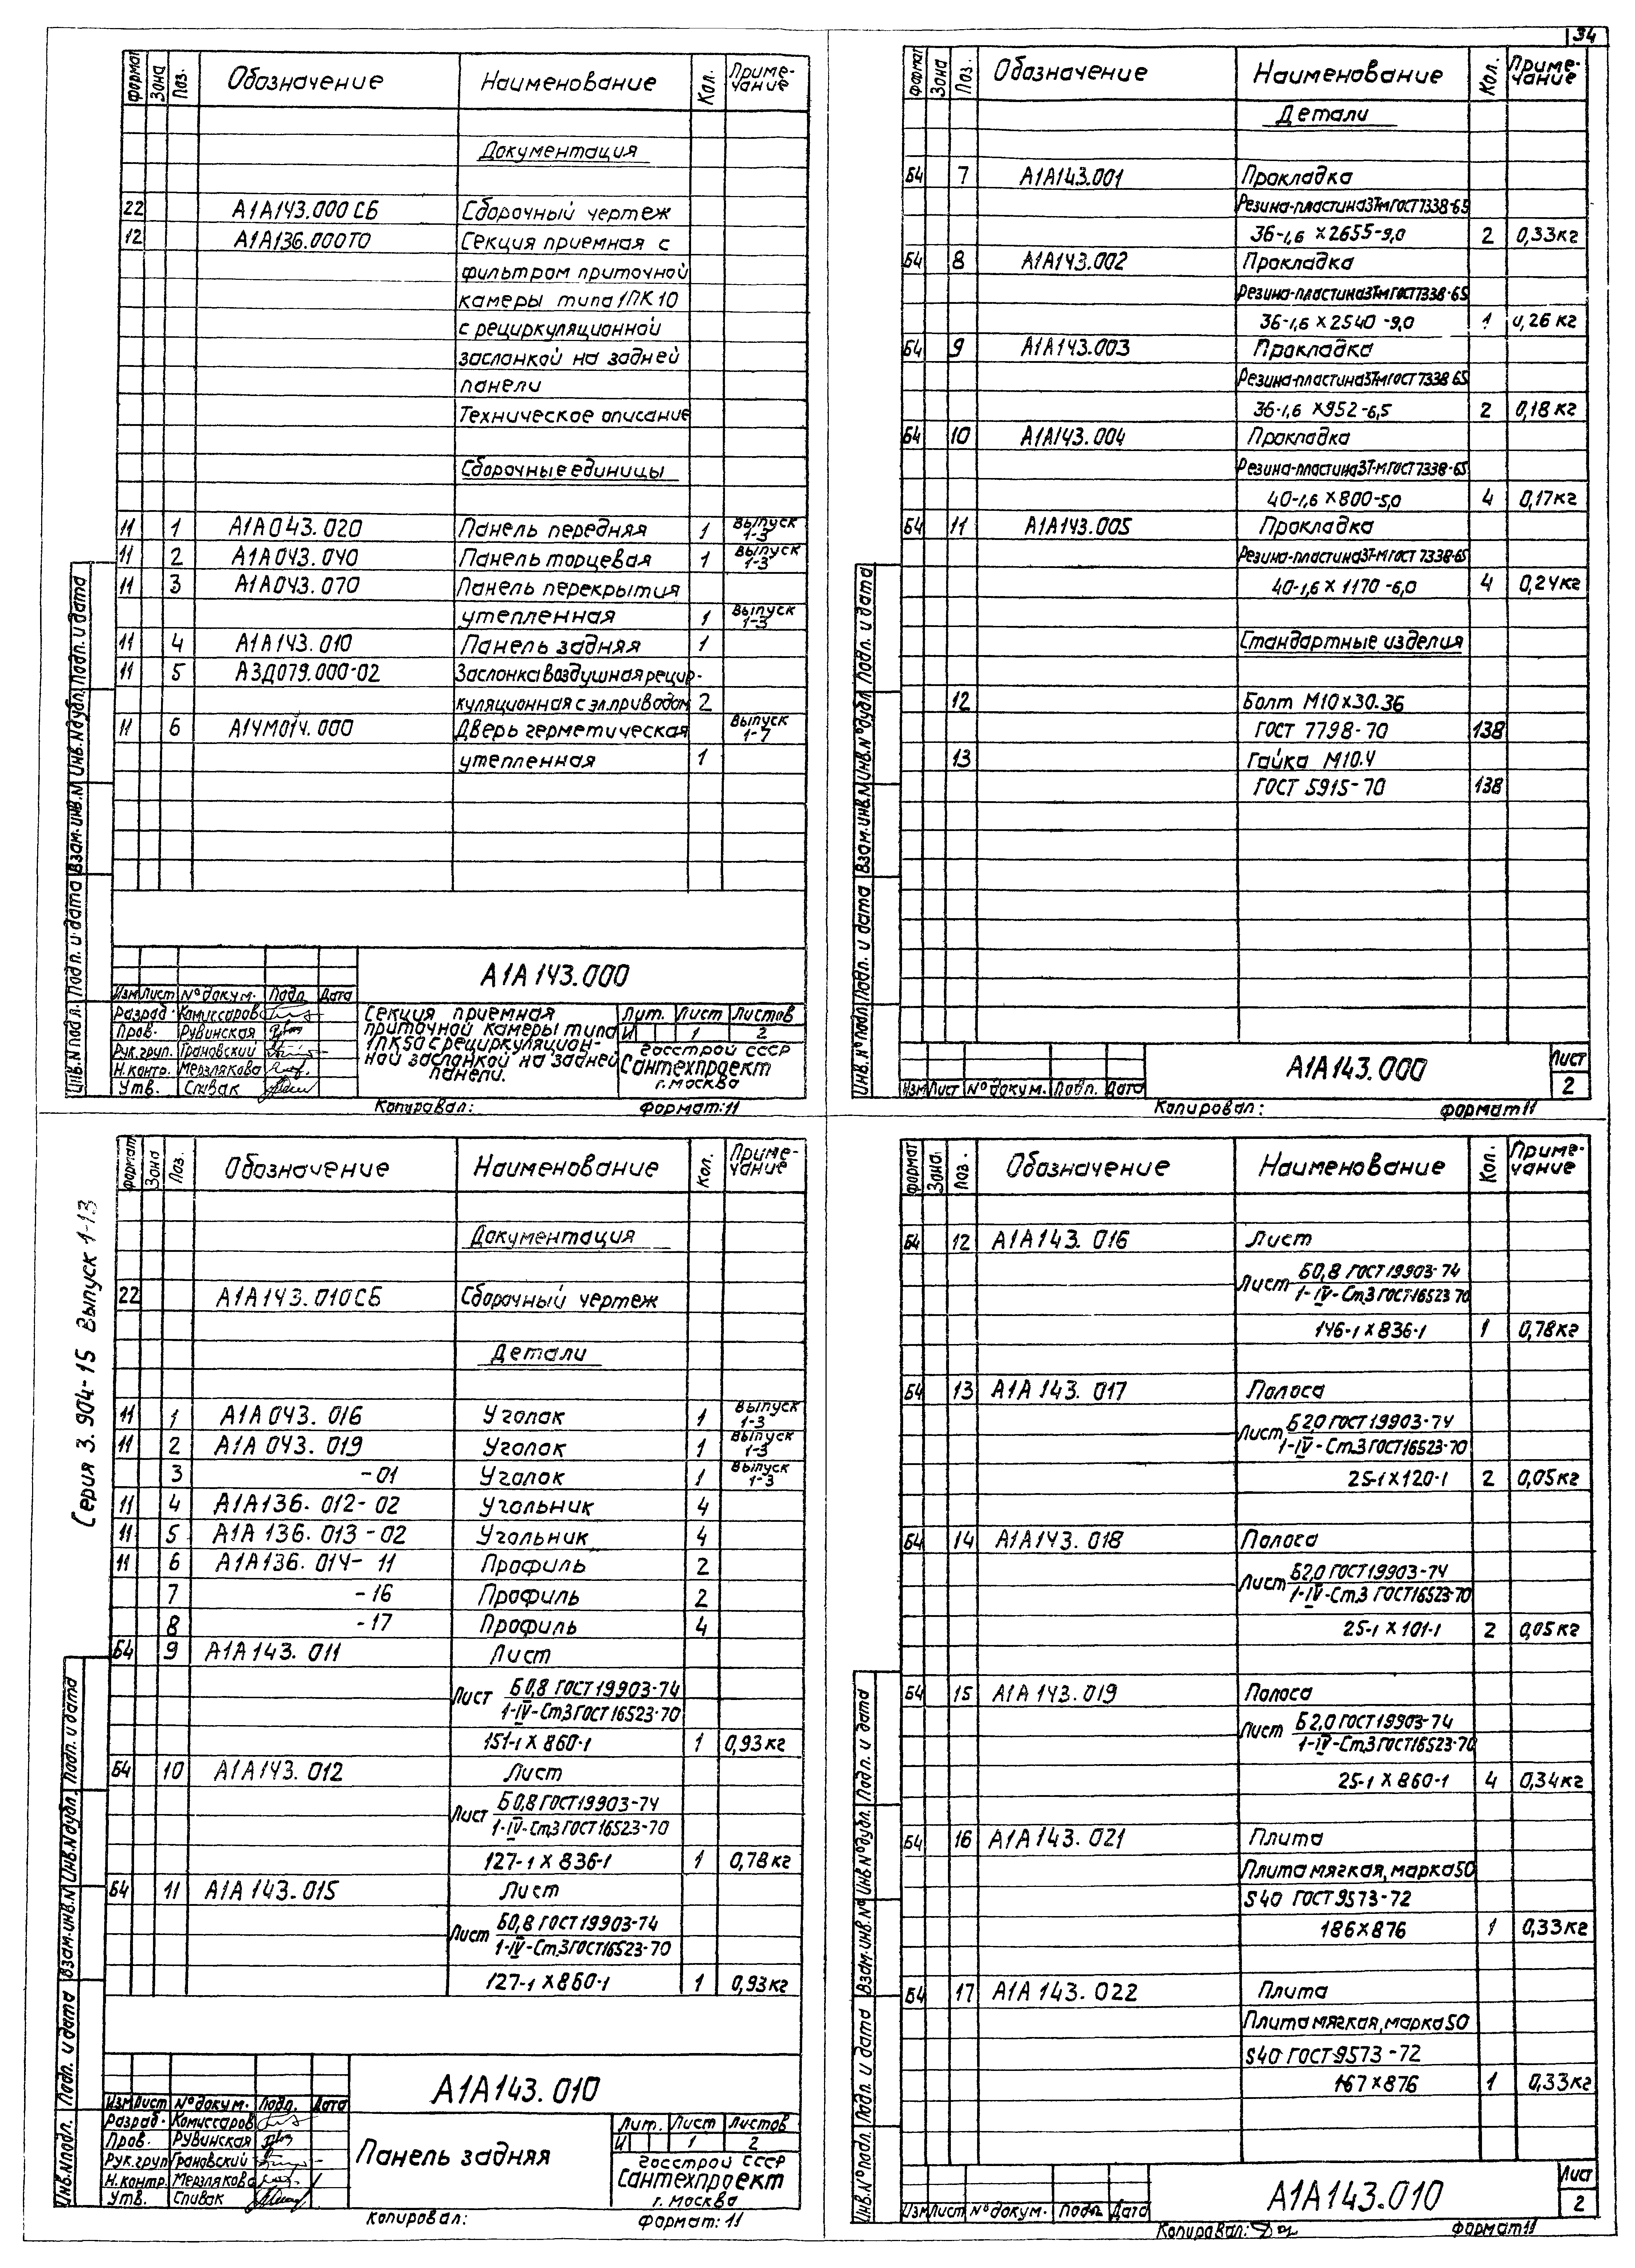 34
Формат Зона Поз. Обозначение Наименование Кол. Приме-чание
Документация
22 А1А143.000 СБ Сборочный чертеж
12 А1А136.000ТО Секция приемная с
фильтром приточной
камеры типа 1ПК 10
с рециркуляционной
заслонкой на задней
панели
Техническое описание
Сборочные единицы
11 1 А1А043.020 Панель передняя 1 Выпуск 1-3
11 2 А1А043.040 Панель торцевая 1 Выпуск 1-3
11 3 А1А043.070 Панель перекрытия
утепленная 1 Выпуск 1-3
11 4 А1А143.010 Панель задняя 1
11 5 А3Д079.000-02 Заслонка воздушная рецир-
куляционная с эл.приводом 2
11 6 А1ЧМ014.000 Дверь герметическая Выпуск 1-7
утепленная 1
Инв.N подл. Подп. и дата Взам.инв.N Инв.N дубл. Подп. и дата
А1А143.000
Изм Лист N° докум. Подп. Дата
Разраб. Комиссаров
Пров. Рувинская
Рук.груп. Грановский
Н.контр. Мерзлякова
Утв. Спивак
Секция приемная
приточной камеры типа
1ПК50 с рециркуляцион-
ной заслонкой на задней
панели.
Лит. Лист Листов
И 1 2
Госстрой СССР
Сантехпроект
г.Москва
Копировал: Формат:11
Формат Зона Поз. Обозначение Наименование Кол. Приме-чание
Детали
Б4 7 А1А143.001 Прокладка
Резина-пластина3Т-МГОСТ7338-65
36-1,6 х2655-9,0 2 0,33кг
Б4 8 А1А143.002 Прокладка
Резина-пластина3Т-МГОСТ7338-65
36-1,6 х2540-9,0 1 0,26 кг
Б4 9 А1А143.003 Прокладка
Резина-пластина3Т-МГОСТ7338 65
36-1,6 х952-6,5 2 0,18 кг
Б4 10 А1А143.004 Прокладка
Резина-пластина3Т-МГОСТ7338-65
40-1,6 х800-5,0 4 0,17кг
Б4 11 А1А143.005 Прокладка
Резина-пластина3Т-МГОСТ 7338-65
40-1,6 х 1170-6,0 4 0,24кг
Стандартные изделия
12 Болт М10х30.36
ГОСТ 7798-70 138
13 Гайка М10.4
ГОСТ 5915-70 138
Инв.N°подл. Подп. и дата Взам.инв.N Инв.N°дубл. Подп. и дата
Изм Лист N° докум. Подп. Дата
А1А143.000
Лист
2
Копировал: Формат11
Серия 3.904-15 Выпуск 1-13
Формат Зона Поз. Обозначение Наименование Кол. Приме-чание
Документация
22 А1А143.010СБ Сборочный чертеж
Детали
11 1 А1А043.016 Уголок 1 Выпуск 1-3
11 2 А1А043.019 Уголок 1 Выпуск 1-3
3 -01 Уголок 1 Выпуск 1-3
11 4 А1А136.012-02 Угольник 4
11 5 А1А136.013-02 Угольник 4
11 6 А1А136.014-11 Профиль 2
7 -16 Профиль 2
8 -17 Профиль 4
Б4 9 А1А143.011 Лист
Лист Б0,8 ГОСТ19903-74
1-IV-Ст3ГОСТ16523-70
151-1 х 860-1 1 0,93кг
Б4 10 А1А143.012 Лист
Лист Б0,8ГОСТ19903-74
1-IV-Ст3ГОСТ16523-70
127-1 х 836-1 1 0,78 кг
Б4 11 А1А143.015 Лист
Лист Б0,8 ГОСТ19903-74
1-IV-Ст3ГОСТ16523-70
127-1 х860-1 1 0,93кг
Инв.Nподл. Подп. и дата Взам.инв.N Инв.Nдубл. Подп. и дата
А1А143.010
Изм Лист N°докум. Подп. Дата
Разраб. Комиссаров
Пров. Рувинская
Рук.груп Грановский
Н.контр. Мерзлякова
Утв. Спивак
Панель задняя
Лит. Лист Листов
И 1 2
Госстрой СССР
Сантехпроект
г.Москва
Копировал: Формат:11
Формат Зона. Поз. Обозначение Наименование Кол. Приме-чание
Б4 12 А1А143.016 Лист
Лист Б0,8 ГОСТ19903-74
1-IV-Ст3ГОСТ16523 70
146-1 х 836-1 1 0,78кг
Б4 13 А1А143.017 Полоса
Лист Б2,0 ГОСТ19903-74
1-IV-Ст.3ГОСТ16523-70
25-1х120-1 2 0,05кг
Б4 14 А1А143.018 Полоса
Лист Б2,0 ГОСТ19903-74
1-IV-Ст.3 ГОСТ16523-70
25-1 х 101-1 2 0,05кг
Б4 15 А1А143.019 Полоса
Лист Б2,0 ГОСТ19903-74
1-IV-Ст.3ГОСТ16523-70
25-1 х 860-1 4 0,34кг
Б4 16 А1А143.021 Плита
Плита мягкая, марка50
S40 ГОСТ9573-72
186х876 1 0,33кг
Б4 17 А1А143.022 Плита
Плита мягкая, марка50
S40 ГОСТ9573-72
167х876 1 0,33кг
Инв.N°подл. Подп. и дата Взам.инв.N° Инв.N°дубл. Подп. и дата
Изм Лист N°докум. Подп. Дата
А1А143.010
Лист
2
Копировал: Формат11